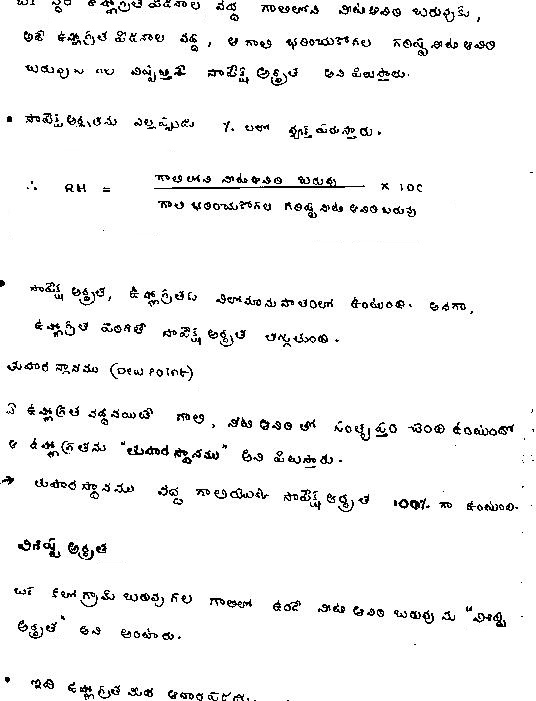 ఒక స్థిర ఉష్ణోగ్రత పీడనాల వద్ద గాలిలోని నీటిఆవిరి బరువుకు,
అదే ఉష్ణోగ్రత పీడనాల వద్ద, ఆ గాలి భరించుకోగల గరిష్ట నీటి ఆవిరి
బరువునకు గల నిష్పత్తినే సాపేక్ష ఆర్ద్రత అని పిలుస్తారు.
• సాపేక్ష ఆర్ద్రతను ఎల్లప్పుడు % లలో వ్యక్తపరుస్తారు.
∴ RH = గాలిలోని నీటిఆవిరి బరువు × 100
గాలి భరించుకోగల గరిష్ట నీటి ఆవిరి బరువు
• సాపేక్ష ఆర్ద్రత, ఉష్ణోగ్రతకు విలోమానుపాతంలో ఉంటుంది. అనగా,
ఉష్ణోగ్రత పెరిగితే సాపేక్ష ఆర్ద్రత తగ్గుతుంది.
తుషార స్థానము (Dew Point)
ఏ ఉష్ణోగ్రత వద్దనయితే గాలి, నీటి ఆవిరి తో సంతృప్తం చెంది ఉంటుందో
ఆ ఉష్ణోగ్రతను "తుషార స్థానము" అని పిలుస్తారు.
→ తుషార స్థానము వద్ద గాలియొక్క సాపేక్ష ఆర్ద్రత 100% గా ఉంటుంది.
విశిష్ట ఆర్ద్రత
ఒక కిలోగ్రామ్ బరువు గల గాలిలో ఉండే నీటి ఆవిరి బరువు ను "విశిష్ట
ఆర్ద్రత" అని అంటారు.
• ఇది ఉష్ణోగ్రత మీద ఆధారపడదు.